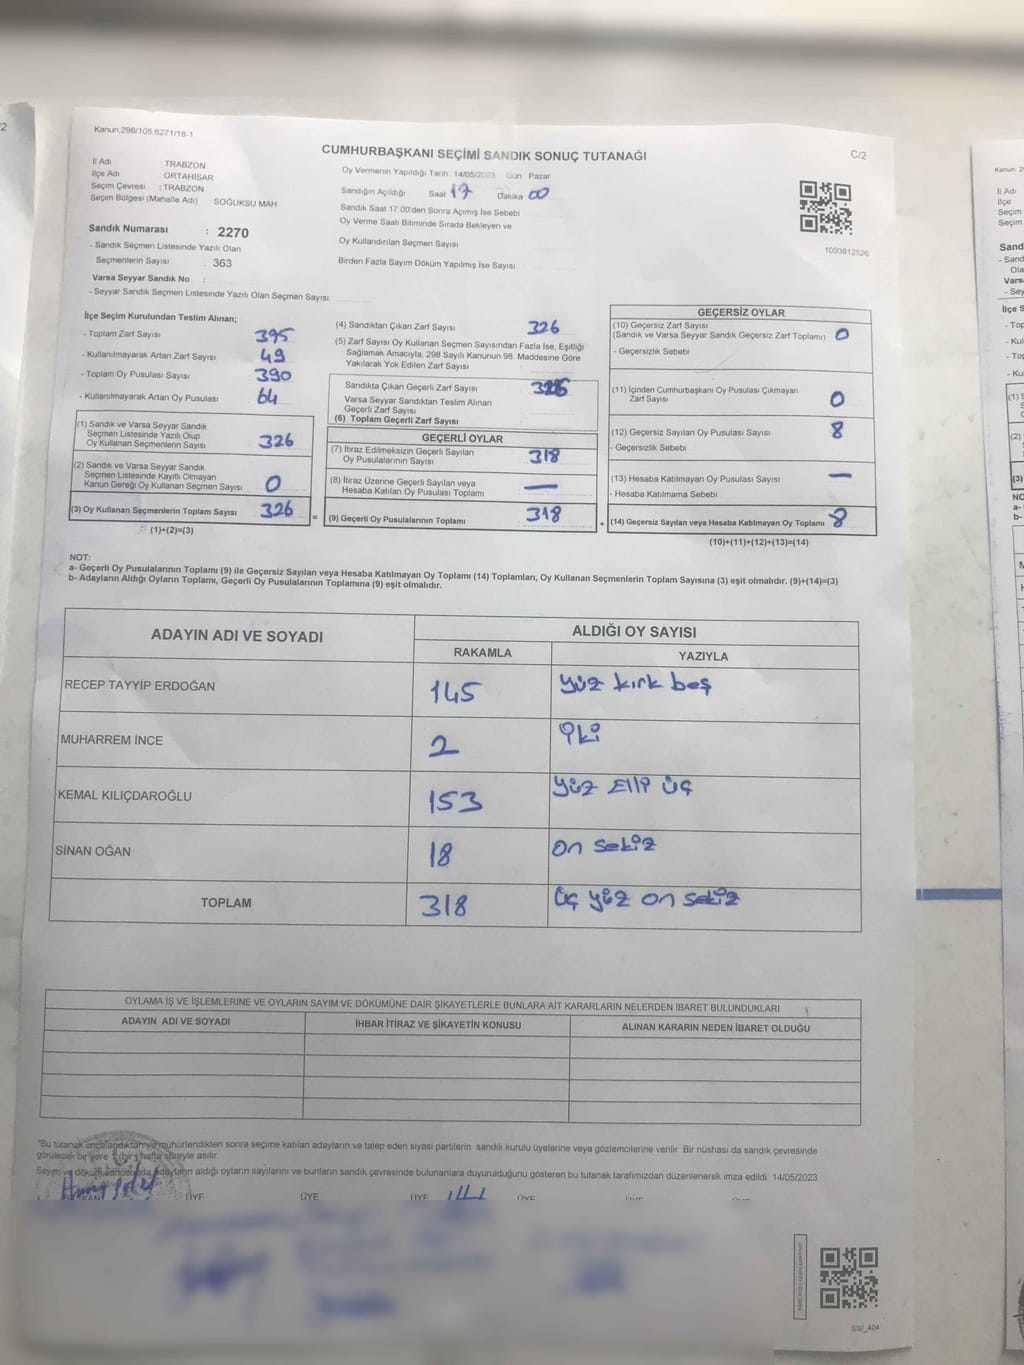 Kanun.298/105,6271/16-1
CUMHURBAŞKANI SEÇİMİ SANDIK SONUÇ TUTANAĞI
C/2
İl Adı TRABZON
İlçe Adı ORTAHİSAR
Seçim Çevresi : TRABZON
Seçim Bölgesi (Mahalle Adı) SOĞUKSU MAH
Sandık Numarası : 2270
- Sandık Seçmen Listesinde Yazılı Olan
Seçmenlerin Sayısı 363
Varsa Seyyar Sandık No :
- Seyyar Sandık Seçmen Listesinde Yazılı Olan Seçmen Sayısı
Oy Vermenin Yapıldığı Tarih 14/05/2023 Gün Pazar
Sandığın Açıldığı Saat 17 Dakika 00
Sandık Saat 17:00'den Sonra Açımış İse Sebebi
Oy Verme Saati Bitiminde Sırada Bekleyen ve
Oy Kullandırılan Seçmen Sayısı
Birden Fazla Sayım Döküm Yapılmış İse Sayısı
1093812526
İlçe Seçim Kurulundan Teslim Alınan;
- Toplam Zarf Sayısı 375
- Kullanılmayarak Artan Zarf Sayısı 49
- Toplam Oy Pusulası Sayısı 390
- Kullanılmayarak Artan Oy Pusulası 64
(1) Sandık ve Varsa Seyyar Sandık
Seçmen Listesinde Yazılı Olup
Oy Kullanan Seçmenlerin Sayısı 326
(2) Sandık ve Varsa Seyyar Sandık
Seçmen Listesinde Kayıtlı Olmayan
Kanun Gereği Oy Kullanan Seçmen Sayısı 0
(3) Oy Kullanan Seçmenlerin Toplam Sayısı 326
(1)+(2)=(3)
=
(4) Sandıktan Çıkan Zarf Sayısı 326
(5) Zarf Sayısı Oy Kullanan Seçmen Sayısından Fazla İse, Eşitliği
Sağlamak Amacıyla, 298 Sayılı Kanunun 98. Maddesine Göre
Yakılarak Yok Edilen Zarf Sayısı
Sandıkta Çıkan Geçerli Zarf Sayısı 326
Varsa Seyyar Sandıktan Teslim Alınan
Geçerli Zarf Sayısı
(6) Toplam Geçerli Zarf Sayısı
GEÇERLİ OYLAR
(7) İtiraz Edilmeksizin Geçerli Sayılan
Oy Pusulalarının Sayısı 318
(8) İtiraz Üzerine Geçerli Sayılan veya
Hesaba Katılan Oy Pusulası Toplamı —
(9) Geçerli Oy Pusulalarının Toplamı 318
+
GEÇERSİZ OYLAR
(10) Geçersiz Zarf Sayısı
(Sandık ve Varsa Seyyar Sandık Geçersiz Zarf Toplamı) 0
- Geçersizlik Sebebi
(11) İçinden Cumhurbaşkanı Oy Pusulası Çıkmayan
Zarf Sayısı 0
(12) Geçersiz Sayılan Oy Pusulası Sayısı 8
- Geçersizlik Sebebi
(13) Hesaba Katılmayan Oy Pusulası Sayısı —
- Hesaba Katılmama Sebebi
(14) Geçersiz Sayılan veya Hesaba Katılmayan Oy Toplamı 8
(10)+(11)+(12)+(13)=(14)
NOT:
a- Geçerli Oy Pusulalarının Toplamı (9) ile Geçersiz Sayılan veya Hesaba Katılmayan Oy Toplamı (14) Toplamları, Oy Kullanan Seçmenlerin Toplam Sayısına (3) eşit olmalıdır. (9)+(14)=(3)
b- Adayların Aldığı Oyların Toplamı, Geçerli Oy Pusulalarının Toplamına (9) eşit olmalıdır.
ADAYIN ADI VE SOYADI
ALDIĞI OY SAYISI
RAKAMLA YAZIYLA
RECEP TAYYİP ERDOĞAN 145 yüz kırk beş
MUHARREM İNCE 2 iki
KEMAL KILIÇDAROĞLU 153 yüz Elli üç
SİNAN OĞAN 18 on sekiz
TOPLAM 318 üç yüz on sekiz
OYLAMA İŞ VE İŞLEMLERİNE VE OYLARIN SAYIM VE DÖKÜMÜNE DAİR ŞİKAYETLERLE BUNLARA AİT KARARLARIN NELERDEN İBARET BULUNDUKLARI
ADAYIN ADI VE SOYADI İHBAR İTİRAZ VE ŞİKAYETİN KONUSU ALINAN KARARIN NEDEN İBARET OLDUĞU
*Bu tutanak imzalandıktan ve mühürlendikten sonra seçime katılan adayların ve talep eden siyasi partilerin sandık kurulu üyelerine veya gözlemcilerine verilir. Bir nüshası da sandık çevresinde
görülecek bir yere 1 (bir) hafta süreyle asılır.
Sayım ve döküm sonucunda adayların aldığı oyların sayılarını ve bunların sandık çevresinde bulunanlara duyurulduğunu gösteren bu tutanak tarafımızdan düzenlenerek imza edildi. 14/05/2023
ÜYE ÜYE ÜYE ÜYE
SSI_404